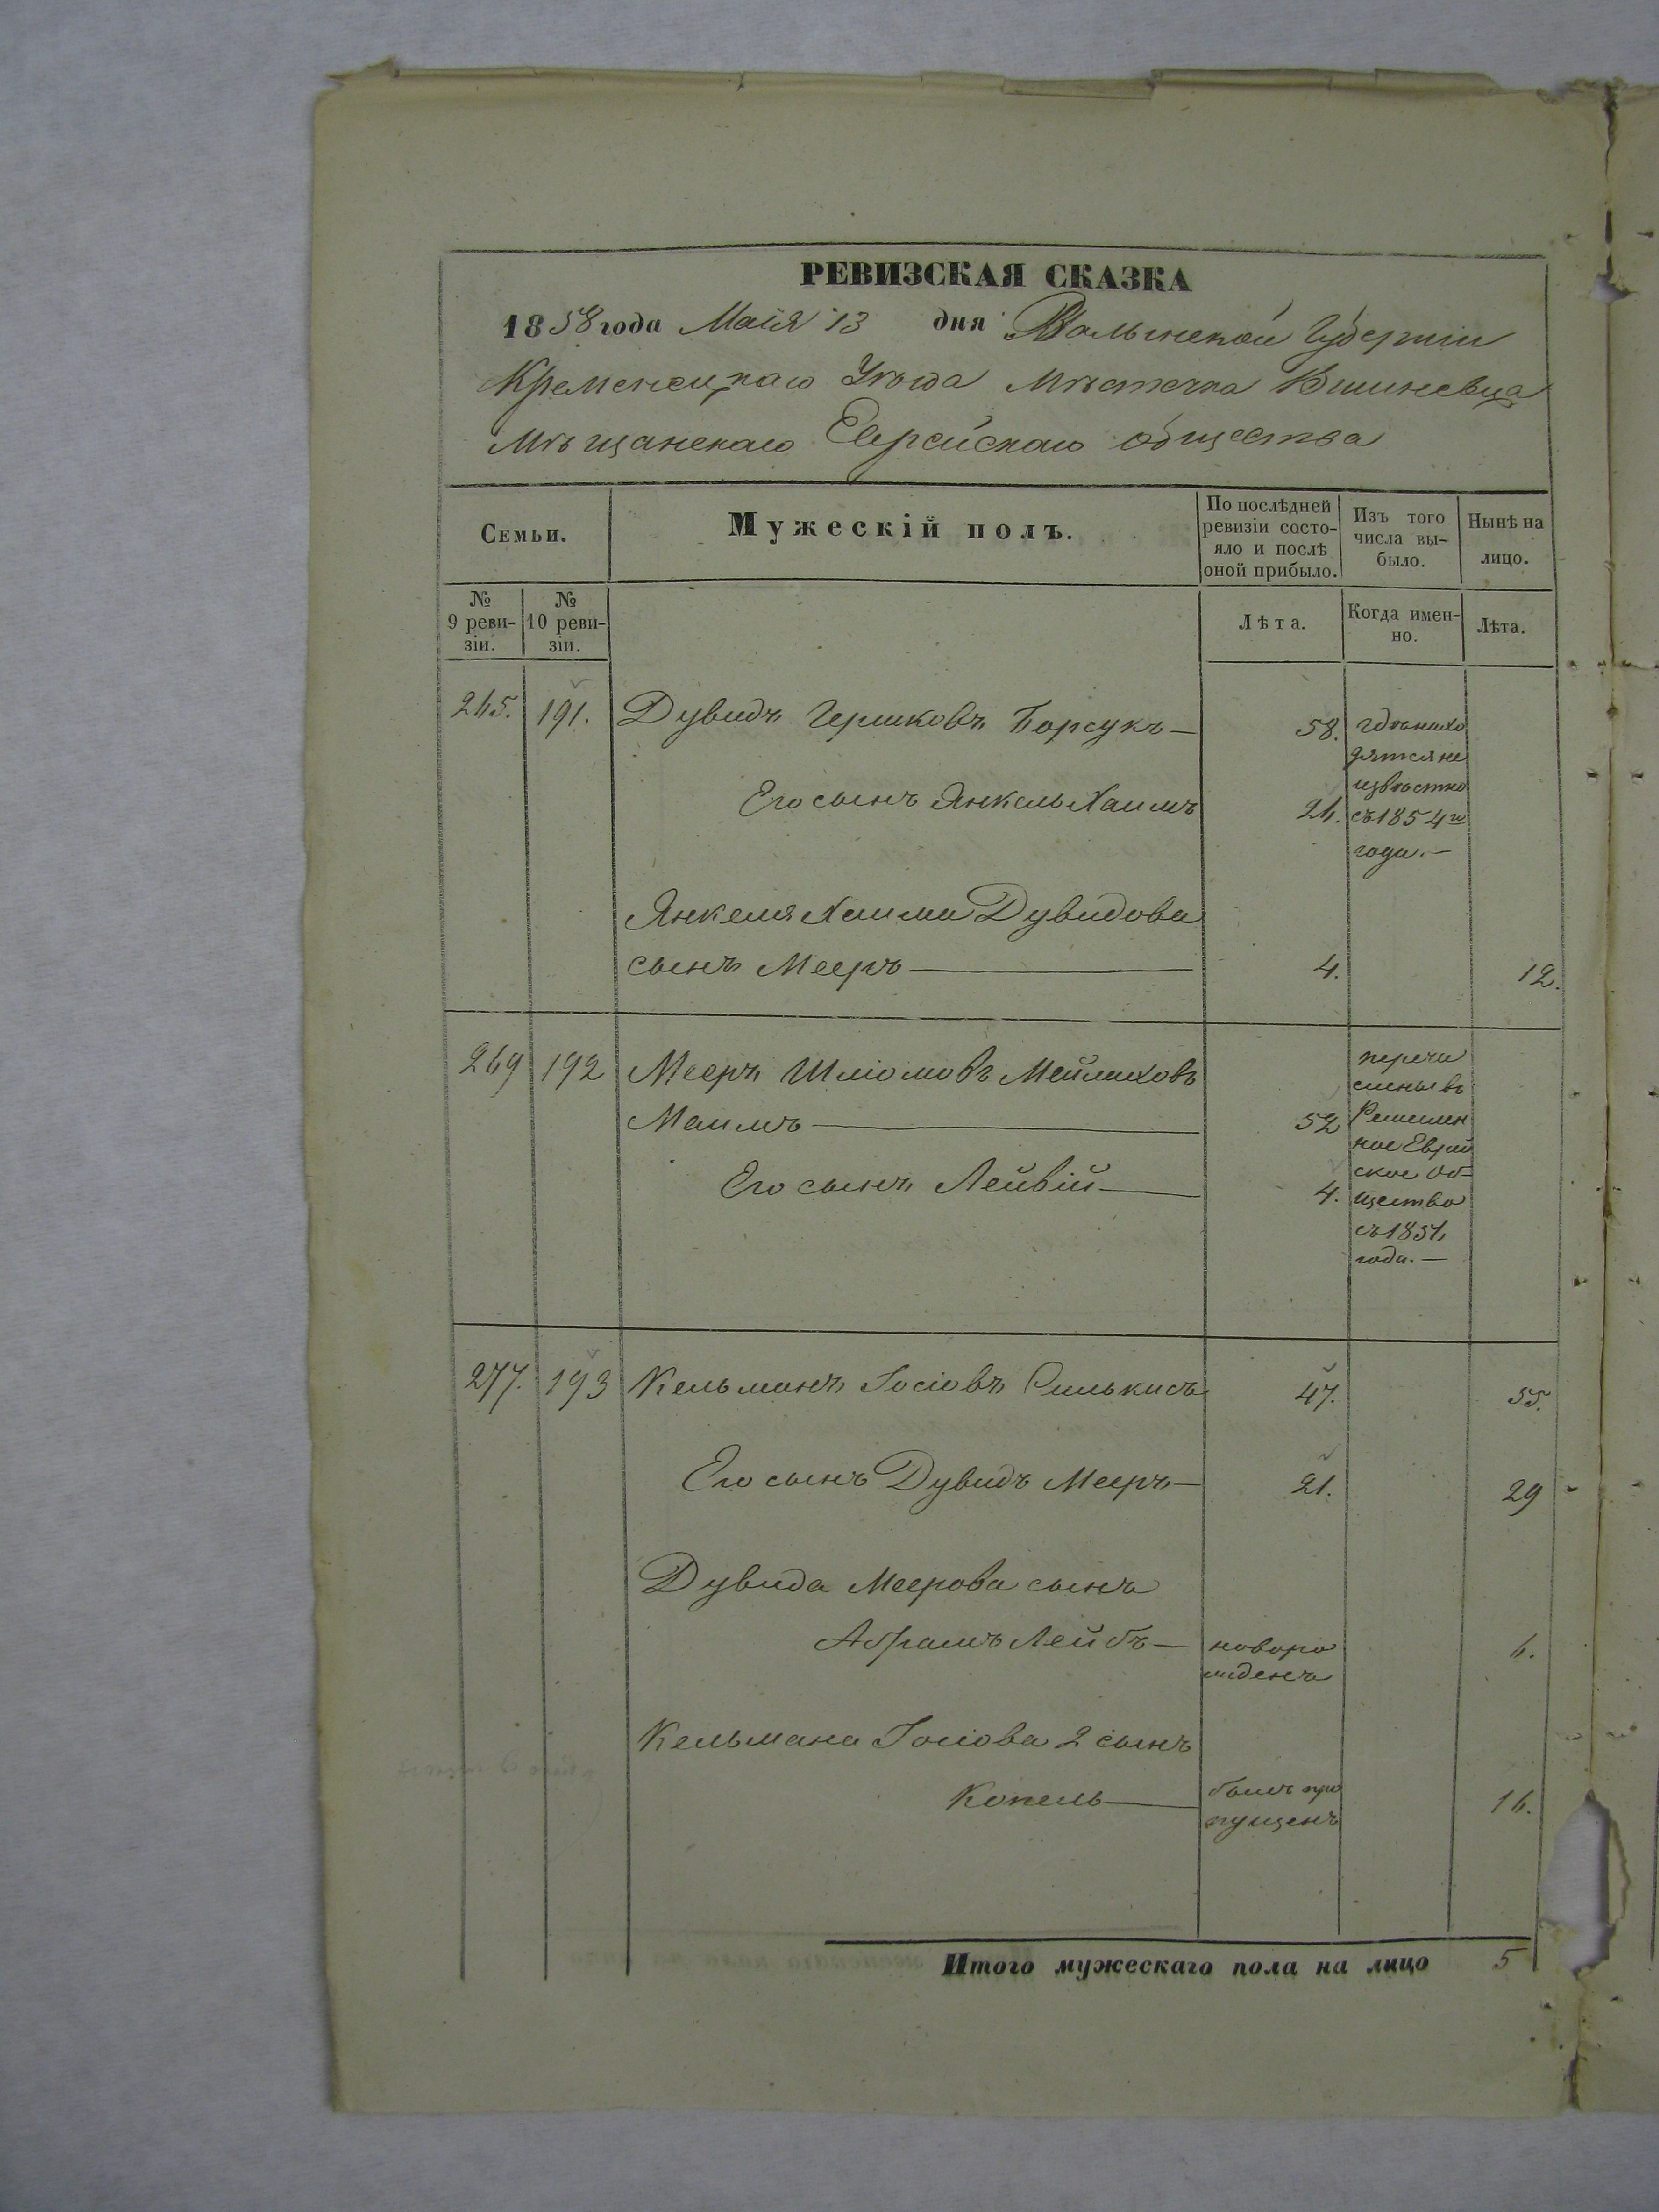 РЕВИЗСКАЯ СКАЗКА
1858 года Маія 13 дня Волынской Губерніи
Кременецкаго Уѣзда Мѣстечка Вишневца
Мѣщанскаго Еврейскаго общества
Семьи.
Мужескій полъ.
По послѣдней ревизіи состояло и послѣ оной прибыло.
Изъ того числа выбыло.
Нынѣ на лицо.
№ 9 ревизіи.
№ 10 ревизіи.
Лѣта.
Когда именно.
Лѣта.
265. 191. Дувидъ Гершковъ Борсукъ — 58. гдѣ нахо
дятся не
извѣстно
Его сынъ Янкель Хаимъ 26. съ 1854 го
года. —
Янкеля Хаима Дувидова
сынъ Мееръ — 4. 12.
269 192 Мееръ Шліомовъ Мейлиховъ перечи
слены въ
Маимъ — 52
ное Еврей
ское Об
Его сынъ Лейвій — 4. щество
съ 1851
года. —
277. 193 Кельманъ Іосіовъ Силькисъ 47. 55.
Его сынъ Дувидъ Мееръ — 21. 29
Дувида Меерова сынъ
Абрамъ Лейбъ — новоро 6.
жденъ
Кельмана Іосіова 2 сынъ
Копель — былъ про 16.
пущенъ
Итого мужескаго пола на лицо 5